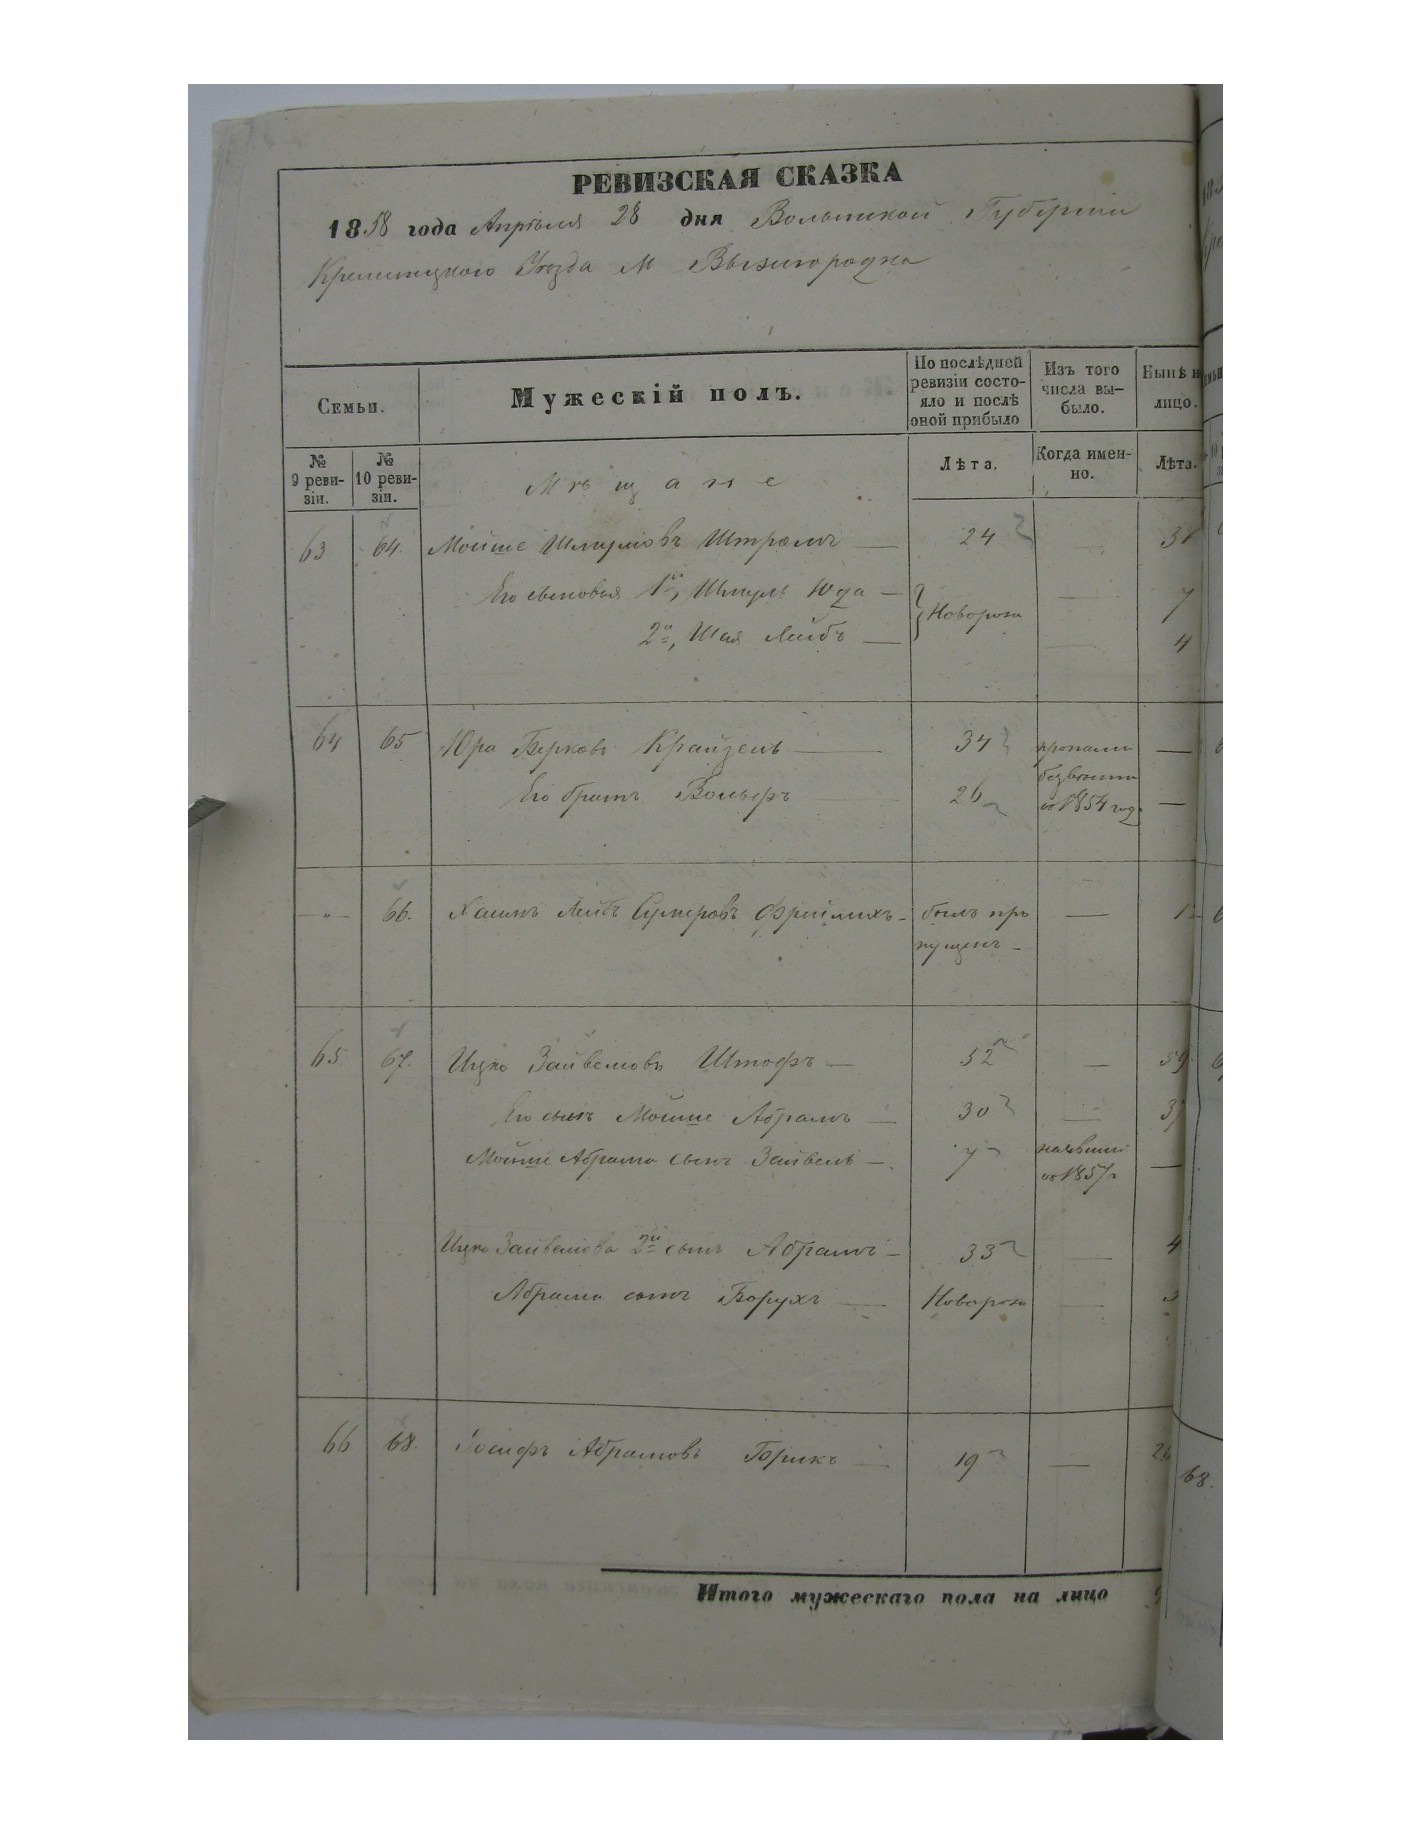 РЕВИЗСКАЯ СКАЗКА
1858 года Апрѣля 28 дня Волынской Губерніи
Кременецкого Уѣзда М Вышгородка
Семьи.
Мужескій полъ.
По послѣдней ревизіи состо-
яло и послѣ
оной прибыло
Изъ того
числа вы-
было.
Нынѣ н
лицо.
№
9 реви-
зіи.
№
10 реви-
зіи.
Лѣта.
Когда имен-
но.
Лѣта.
Мѣщане
63 64. Мойше Шмулiовъ Штрамъ — 24 —
Его сыновья 1й, Шмуль Юда — Новорож — 7
2й, Шая Лейбъ — — 4
64 65 Юра Берковъ Крайзель — 34 пропали —
безвѣстно
Его братъ Вольфъ 26 въ 1854 год. —
— „ — 66. Хаимъ Лейбъ Фреймихъ — былъ про —
пущенъ —
65 67. Ицко Зайвеловъ Штофъ — 52 — 59
Его сынъ Мойше Абрамъ — 30 — 37
Мойше Абрама сынъ Зайвель — 7 —
въ 1857г
Ицко Зайвелова 2й сынъ Абрамъ — 33 — 4
Абрама сынъ Борухъ — Новорож — 3
66 68. Іосифъ Абрамовъ Брикъ — 19 — 26
68.
Итого мужескаго пола на лицо